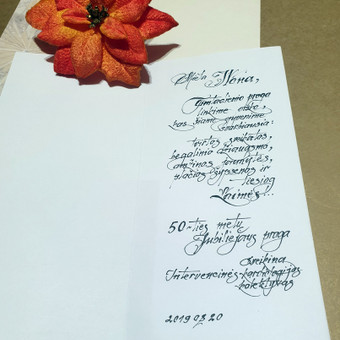 Miela Nona,
Gimtadienio proga
linkime visko,
kas šiame gyvenime
svarbiausia:
tvirtos sveikatos,
begalinio džiaugsmo,
amžinos jaunystės,
plačios šypsenos ir
tiesiog
Laimės!..
50-ties metų
Jubiliejaus proga
sveikina
Intervencinės kardiologijos
kolektyvas
2019 03 20